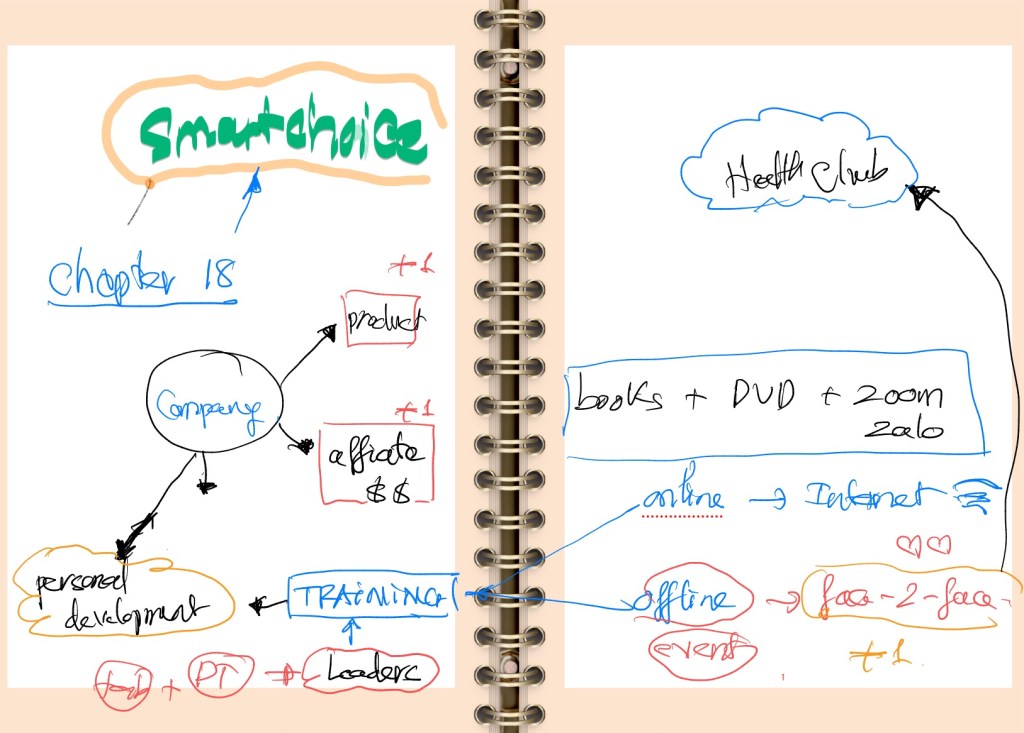 Smartchoice
chapter 18
+1
product
Company
+1
affiate
$$
personal
development
TRAINING
+ PT
Leaders
Health Club
books + DVD + zoom
zalo
online → Internet
offline → face-2-face
event
+1